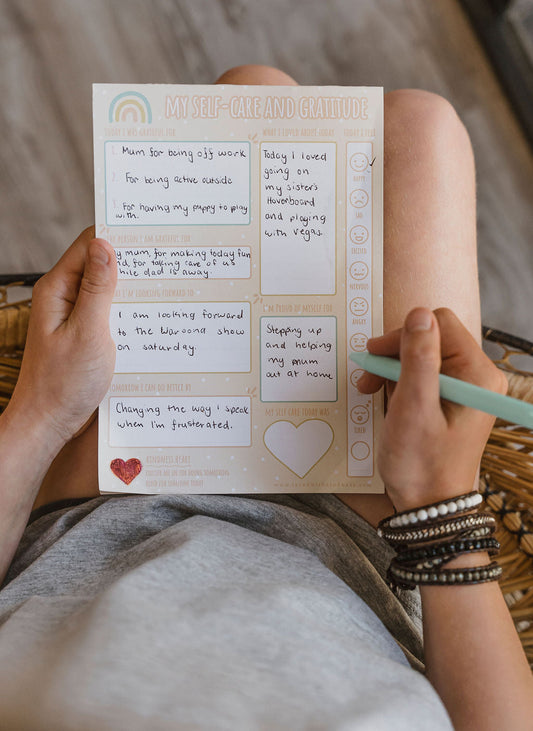 MY SELF-CARE AND GRATITUDE
TODAY I WAS GRATEFUL FOR
1. Mum for being off work
2. For being active outside
3. For having my puppy to play
with.
PERSON I AM GRATEFUL FOR
my mum, for making today fun
and, for taking care of us
while dad is away.
WHAT I'M LOOKING FORWARD TO
I am looking forward
to the Waroona show
on saturday.
TOMORROW I CAN DO BETTER BY
Changing the way I speak
when I'm frusterated.
KINDNESS HEART
COLOUR ME IN FOR DOING SOMETHING
KIND FOR SOMEONE TODAY
WHAT I LOVED ABOUT TODAY
Today I loved
going on
my sister's
Hoverboard
and playing
with Vegas.
I'M PROUD OF MYSELF FOR
Stepping up
and helping
my mum
out at home
MY SELF CARE TODAY WAS
TODAY I FELT
HAPPY
SAD
EXCITED
NERVOUS
ANGRY
TIRED